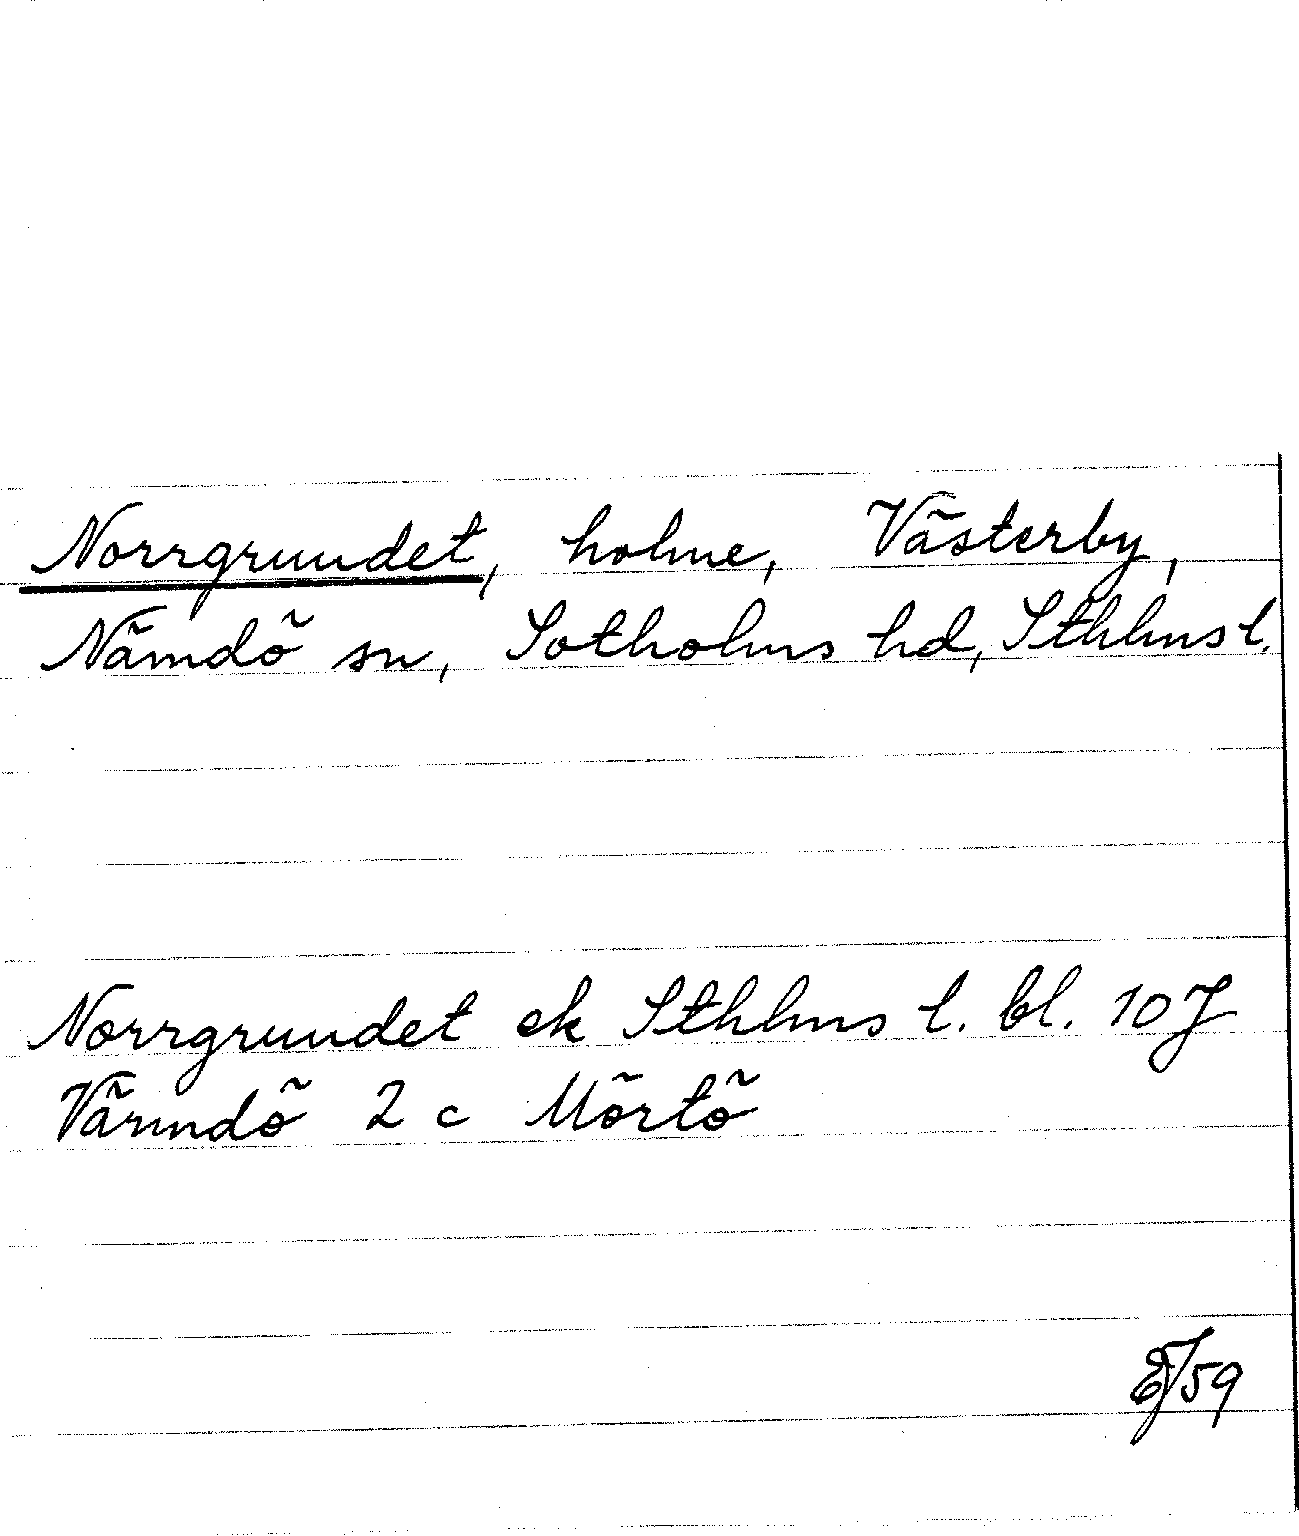 Norrgrundet, holme, Västerby,
Nämdö sn, Sotholms hd, Sthlms l.
Norrgrundet ek Sthlms l. bl. 10 J
Värmdö 2 c Mörtö
/59